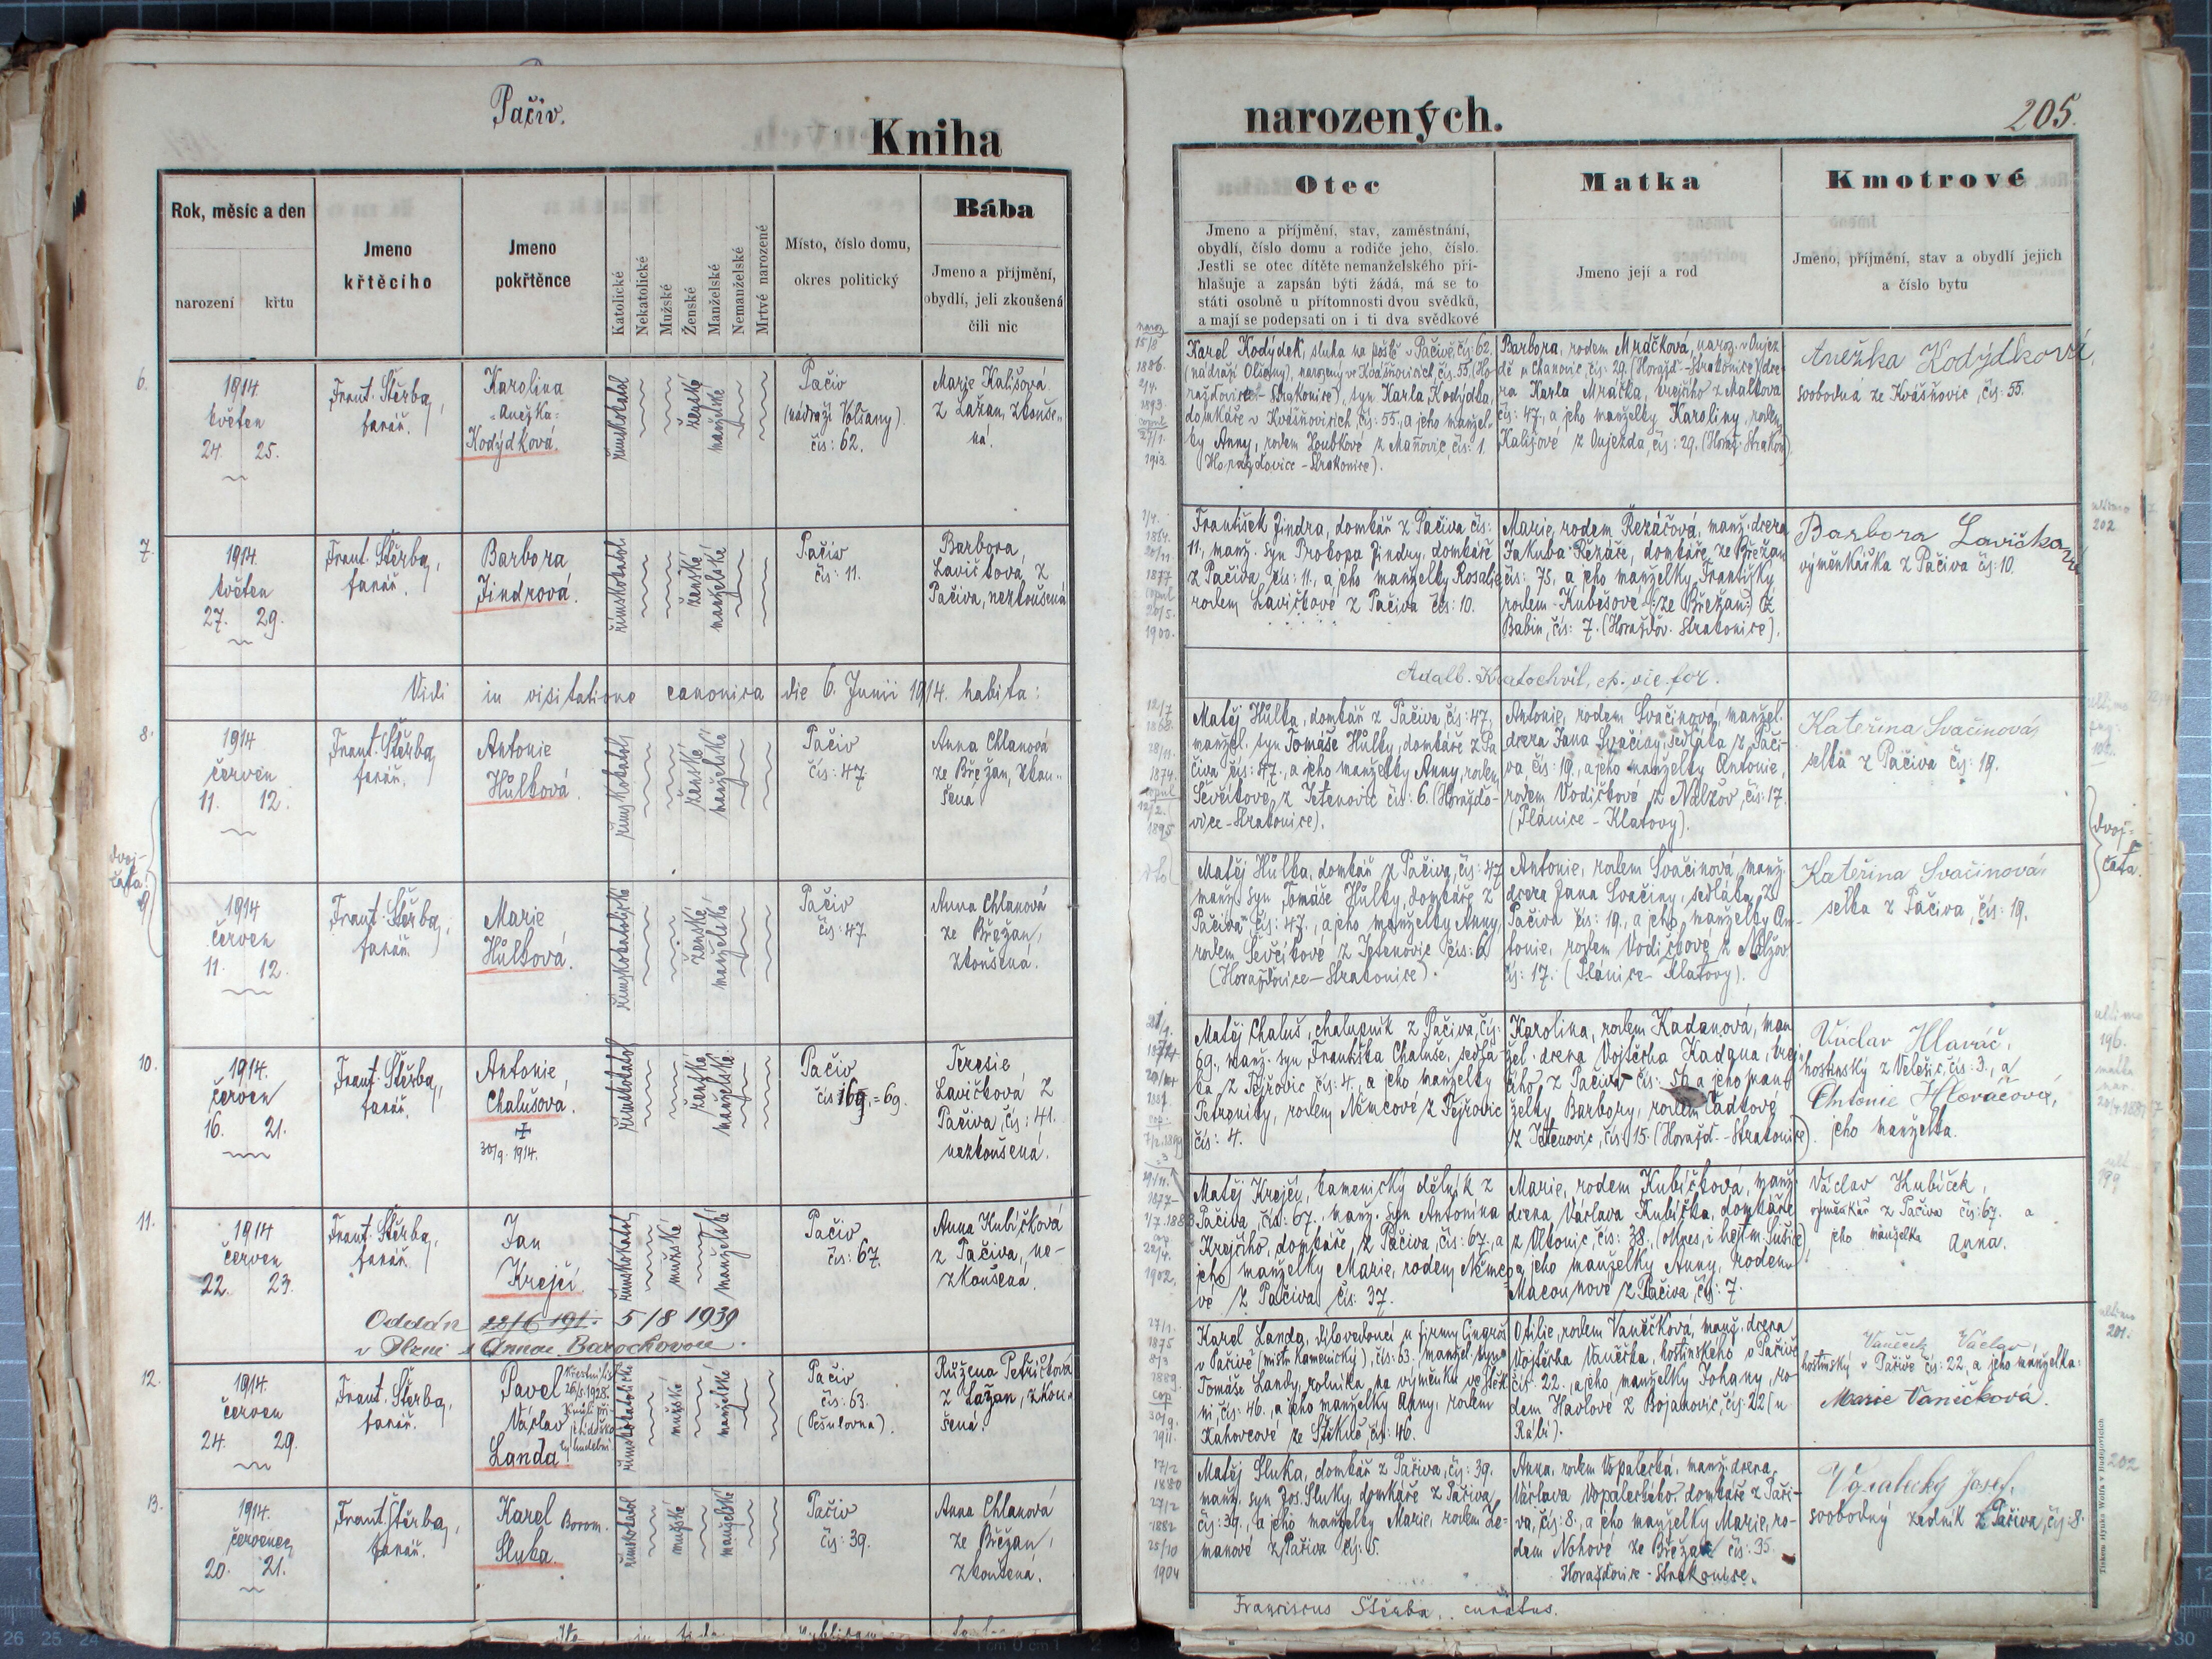 Pačiv.
Kniha
Rok, měsíc a den
narození křtu
Jmeno
křtěcího
Jmeno
pokřtěnce
Katolické
Nekatolické
Mužské
Ženské
Manželské
Nemanželské
Mrtvé narozené
Místo, číslo domu,
okres politický
Bába
Jmeno a příjmění,
obydlí, jeli zkoušená
čili nic
6.
1914
květen
24. 25.
Frant. Štěrba,
farář.
Karolina
Anežka
Kodýdková.
římskokatol
ženské
manželské
Pačiv
(nádraží Volšany)
čís: 62.
Marie Kališová
z Lažan, zkouše-
ná.
7.
1914
květen
27. 29.
Frant. Štěrba,
farář.
Barbora
Jindrová.
římskokatol
ženské
manželské
Pačiv
čís: 11.
Barbora
Lavičková z
Pačiva, nezkoušená
Vidi in visitatione canonica die 6. Junii 1914. habita:
8.
1914
červen
11. 12.
Frant. Štěrba,
farář.
Antonie
Hůlková.
římskokatol
ženské
manželské
Pačiv
čís: 47.
Anna Chlanová
ze Břežan, zkou-
šená
dvoj-
čata!
9.
1914
červen
11. 12.
Frant. Štěrba,
farář.
Marie
Hůlková.
římskokatolické
ženské
manželské
Pačiv
čís: 47.
Anna Chlanová
ze Břežan,
zkoušená.
10.
1914.
červen
16. 21.
Frant. Štěrba,
farář.
Antonie
Chalušová.
30/9. 1914.
římskokatol
ženské
manželské
Pačiv
čís 169, = 69.
Terezie
Lavičková z
Pačiva, čís: 41.
nezkoušená.
11.
1914
červen
22. 23.
Frant. Štěrba,
farář.
Jan
Krejčí.
římskokatol
mužské
manželské
Pačiv
čís: 67.
Anna Kubíčková
z Pačiva, ne-
zkoušená.
Oddán 22/6 191. 5/8 1939
v Plzni s Annou Barochovou.
12.
1914.
červen
24. 29.
Frant. Štěrba,
farář.
Pavel
Václav
Landa
Křestní list
26/5. 1928.
římskokatolické
mužské
manželské
Pačiv
čís: 63.
(Pešulovna).
Růžena Petříčková
z Lažan, zkou-
šená.
13.
1914.
červenec
20. 21.
Frant. Štěrba,
farář.
Karel Borom.
Sluka
římskokatol
mužské
manželské
Pačiv
čís: 39.
Anna Chlanová
ze Břežan,
zkoušená.
narozených.
205.
Otec
Jmeno a příjmění, stav, zaměstnání,
obydlí, číslo domu a rodiče jeho, číslo.
Jestli se otec dítěte nemanželského při-
hlašuje a zapsán býti žádá, má se to
státi osobně u přítomnosti dvou svědků,
a mají se podepsati on i ti dva svědkové
Matka
Jmeno její a rod
Kmotrové
Jméno, příjmění, stav a obydlí jejich
a číslo bytu
naroz
15/8
1886.
2/4.
1893.
copul
27/1.
1913.
Karel Kodýdek, sluha na poště v Pačivě, čís: 62.
(nádraží Olšany), narozený ve Kvášňovicích čís. 55. (Ho-
raždovice - Strakonice), syn Karla Kodýdka,
domkáře v Kvášňovicích, čís: 55., a jeho manžel-
ky Anny, rodem Loubkové z Maňovic, čís: 1.
(Horažďovice - Strakonice).
Barbora, rodem Mráčková, naroz. v Oujez-
dě u Chanovic, čís: 29. (Horažď-Strakonice), dce-
ra Karla Mráčka, krejčího z Malkova
čís: 47, a jeho manželky Karoliny, rodem
Kališové z Oujezda, čís: 29. (Horaž-Strakon).
Anežka Kodýdková,
svobodná ze Kvášňovic, čís: 55.
František Jindra, domkář z Pačiva čís:
11., manž. syn Prokopa Jindry, domkáře
z Pačiva, čís: 11., a jeho manželky Rosalie
rodem Lavičkové z Pačiva čís: 10.
Marie, rodem Řezáčová, manž. dcera
Jakuba Řezáče, domkáře ze Břežan
čís: 75, a jeho manželky Františky
rodem Kubešové (ze Břežan:) z
Babin, čís: 7. (Horažďov. Strakonice).
Barbora Lavičková
výměnkářka z Pačiva čís: 10.
ultimo
202.
Adalb. Kratochvíl, ep. vic. for.
12/7
1868.
28/11.
1874.
copul
12/2.
1895
Matěj Hůlka, domkář z Pačiva, čís: 47,
manžel. syn Tomáše Hůlky, domkáře z Pa-
čiva čís: 47., a jeho manželky Anny, rodem
Ševčíkové, z Jetenovic čís: 6. (Horažďo-
vice - Strakonice).
Antonie, rodem Svačinová, manžel.
dcera Jana Svačiny, sedláka z Pači-
va čís: 19., a jeho manželky Antonie,
rodem Vodičkové z Nalžov, čís: 17.
(Plánice - Klatovy).
Kateřina Svačinová,
selka z Pačiva čís: 19.
dvoj-
čata.
Matěj Hůlka, domkář z Pačiva, čís: 47
manž. syn Tomáše Hůlky, domkáře z
Pačiva čís: 47., a jeho manželky Anny,
rodem Ševčíkové z Jetenovic čís: 6.
(Horažďovice - Strakonice).
Antonie, rodem Svačinová, manž.
dcera Jana Svačiny, sedláka z
Pačiva čís: 19., a jeho manželky An-
tonie, rodem Vodičkové z Nalžov
čís: 17. (Plánice - Klatovy).
Kateřina Svačinová,
selka z Pačiva, čís: 19.
Matěj Chaluš, chalupník z Pačiva, čís:
69., manž. syn Františka Chaluše, sedlá-
ka z Tejřovic čís: 4., a jeho manželky
Petronily, rodem Němcové z Tejřovic
čís: 4.
Karolina, rodem Kadanová, man-
žel. dcera Vojtěcha Kadana, krej-
čího z Pačiva čís: 56, a jeho man-
želky Barbory, rodem
z Jetenovic, čís: 15. (Horažď. - Strakonice).
Václav Hlaváč,
hostinský z Velešic, čís: 3., a
Antonie Hlaváčová,
jeho manželka.
ultimo
196.
Matěj Krejčí, kamenický dělník z
Pačiva, čís: 67., manž. syn Antonína
Krejčího, domkáře z Pačiva, čís: 67., a
jeho manželky Marie, rodem Němco-
vé z Pačiva čís: 37.
Marie, rodem Kubíčková, manž.
dcera Václava Kubíčka, domkáře
z Vltonic, čís: 38., (okres, i hejtm. Sušice)
a jeho manželky Anny, rodem
Macounové z Pačiva, čís: 7.
Václav Kubíček,
výměnkář z Pačiva čís: 67. a
jeho manželka Anna.
27/1.
1875
8/3
1889.
cop
30/9.
1911.
Karel Landa, dílovedoucí u firmy Cingroš
v Pačivě (mistr kamenický), čís: 63. manžel. syn
Tomáše Landy, rolníka na výměnku ve Štěk-
ni, čís: 46., a jeho manželky Anny, rodem
Kahovcové ze Štěkně, čís: 46.
Otilie, rodem Vaněčková, manž. dcera
Vojtěcha Vaněčka, hostinského v Pačivě
čís: 22., a jeho manželky Johany, ro-
dem Havlové z Bojanovic, čís: 22 (u
Rábí).
Vaněček Václav,
hostinský v Pačivě čís: 22, a jeho manželka:
Marie Vaněčková.
ultimo
201.
17/2
1880
27/2
1882
25/10
1904
Matěj Sluka, domkář z Pačiva, čís: 39.
manž. syn Jos. Sluky, domkáře z Pačiva
čís: 39., a jeho manželky Marie, rodem Ze-
manové z Pačiva čís: 5.
Anna, rodem Vopalecká, manž. dcera
Václava Vopaleckého, domkáře z Pači-
va, čís: 8., a jeho manželky Marie, ro-
dem Nohové ze Břežan čís: 35.
Horažďovice - Strakonice.
Vopalecky Josef,
svobodný zedník z Pačiva, čís: 8.
202
Franciscus Štěrba, curatus.
Tiskem Atyuka Wolfa v Budějovicích